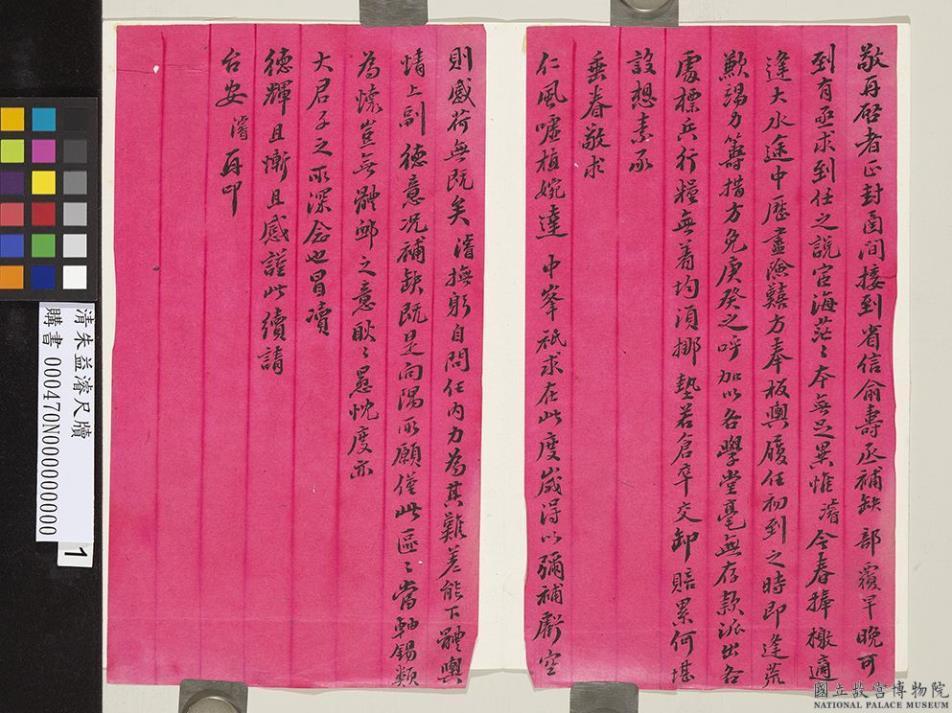 敬再啓者正封函間接到省信俞壽丞補缺部覆早晚可
到有亟求到任之說宦海茫〻本無足異惟濬今春捧檄適
逢大水途中歷盡險囏方奉板輿履任初到之時即逢荒
歉竭力籌措方免庚癸之呼加以各學堂毫無存款派出各
處標兵行糧無着均須挪墊若倉卒交卸賠累何堪
設想素承
垂眷敬求
仁風噓植婉達 中峯祇求在此度歲得以彌補虧空
則感荷無既矣 濬撫躬自問任內力為其難差能下體輿
情上副 德意況補缺既是向隅所願僅此區〻當軸錫類
為懷豈無體卹之意耿〻愚忱度亦
大君子之所深念也冒凟
德輝且慚且感謹此續請
台安 濬 再叩
清朱益濬尺牘
購書 000470N000000000
1
國立故宮博物院
NATIONAL PALACE MUSEUM